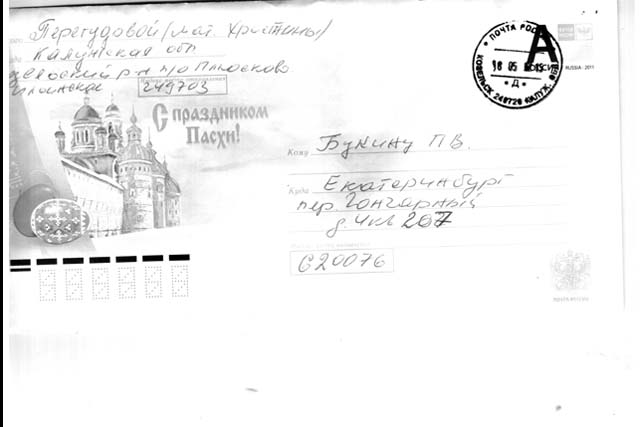 Перегудовой (мат. Христины)
Калужская обл
р-н п/о Плюсково
249703
С праздником
Пасхи!
ПОЧТА РОССИИ
А
18 05
КОЗЕЛЬСК 249720 КАЛУЖ. ОБЛ
Д
RUSSIA · 2011
Кому Букину П В.
Куда Екатеринбург
пер. Гончарный
д. 4 кв 207
620076
ПОЧТА РОССИИ